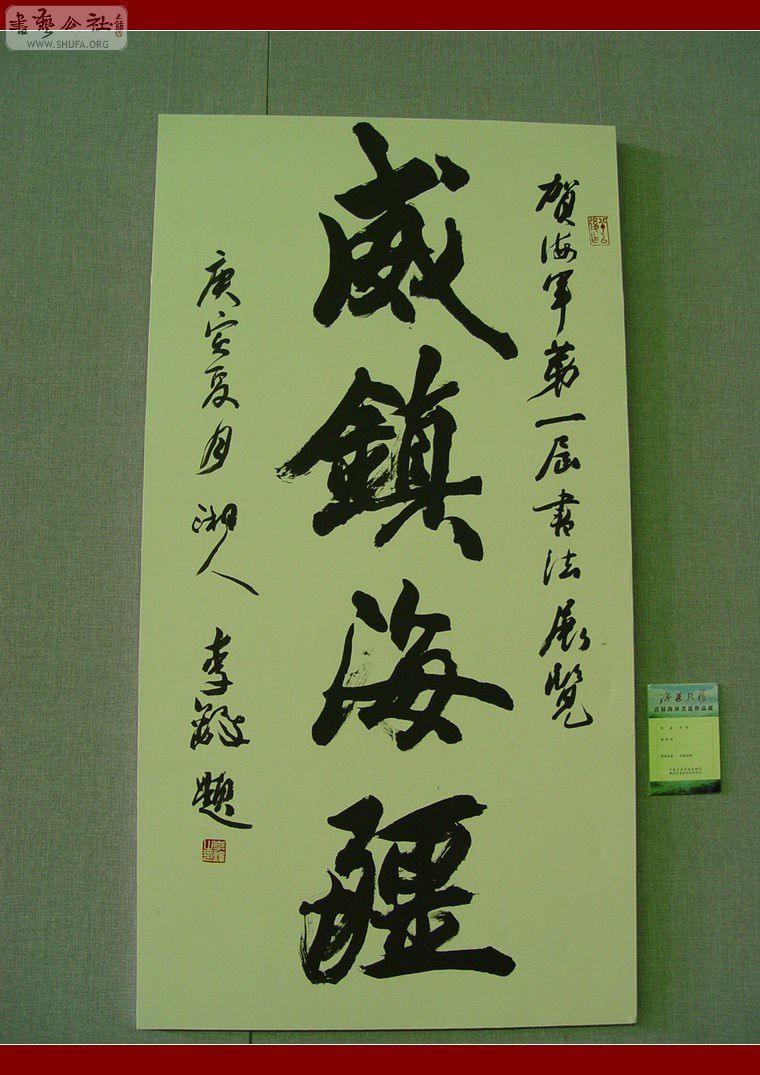 書藝公社
WWW.SHUFA.ORG
賀海軍第一屆書法展覽
威鎮海疆
庚寅夏月湘人李鐸題
首屆海軍書法作品展